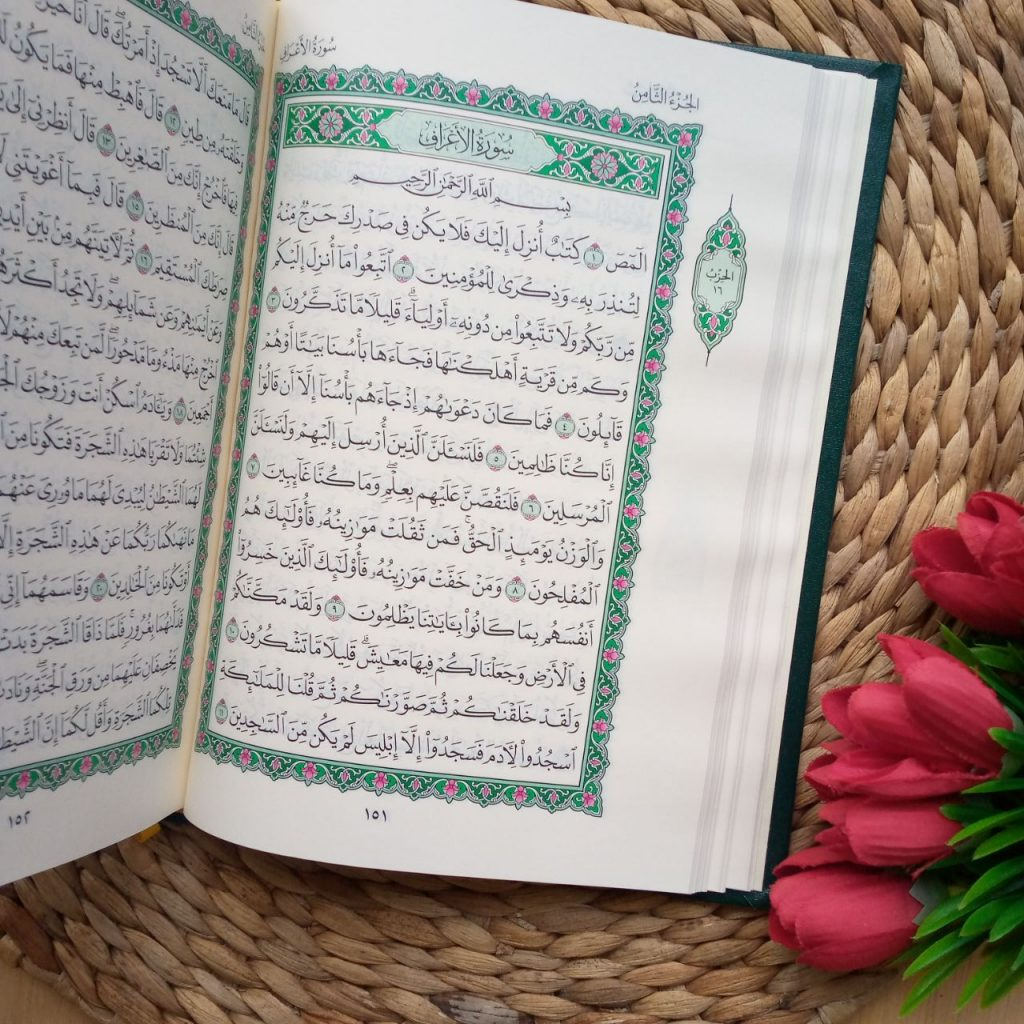 الجُزْءُ الثَّامِنُ
سُورَةُ الأَعْرَافِ
سُورَةُ الأَعْرَافِ
بِسْمِ ٱللَّهِ ٱلرَّحْمَٰنِ ٱلرَّحِيمِ
الٓمٓصٓ ١ كِتَٰبٌ أُنزِلَ إِلَيْكَ فَلَا يَكُن فِى صَدْرِكَ حَرَجٌ مِّنْهُ
لِتُنذِرَ بِهِۦ وَذِكْرَىٰ لِلْمُؤْمِنِينَ ٢ ٱتَّبِعُوا۟ مَآ أُنزِلَ إِلَيْكُم
مِّن رَّبِّكُمْ وَلَا تَتَّبِعُوا۟ مِن دُونِهِۦٓ أَوْلِيَآءَۗ قَلِيلًا مَّا تَذَكَّرُونَ ٣
وَكَم مِّن قَرْيَةٍ أَهْلَكْنَٰهَا فَجَآءَهَا بَأْسُنَا بَيَٰتًا أَوْ هُمْ
قَآئِلُونَ ٤ فَمَا كَانَ دَعْوَىٰهُمْ إِذْ جَآءَهُم بَأْسُنَآ إِلَّآ أَن قَالُوٓا۟
إِنَّا كُنَّا ظَٰلِمِينَ ٥ فَلَنَسْـَٔلَنَّ ٱلَّذِينَ أُرْسِلَ إِلَيْهِمْ وَلَنَسْـَٔلَنَّ
ٱلْمُرْسَلِينَ ٦ فَلَنَقُصَّنَّ عَلَيْهِم بِعِلْمٍۖ وَمَا كُنَّا غَآئِبِينَ ٧
وَٱلْوَزْنُ يَوْمَئِذٍ ٱلْحَقُّۚ فَمَن ثَقُلَتْ مَوَٰزِينُهُۥ فَأُو۟لَٰٓئِكَ هُمُ
ٱلْمُفْلِحُونَ ٨ وَمَنْ خَفَّتْ مَوَٰزِينُهُۥ فَأُو۟لَٰٓئِكَ ٱلَّذِينَ خَسِرُوٓا۟
أَنفُسَهُم بِمَا كَانُوا۟ بِـَٔايَٰتِنَا يَظْلِمُونَ ٩ وَلَقَدْ مَكَّنَّٰكُمْ
فِى ٱلْأَرْضِ وَجَعَلْنَا لَكُمْ فِيهَا مَعَٰيِشَۗ قَلِيلًا مَّا تَشْكُرُونَ ١٠
وَلَقَدْ خَلَقْنَٰكُمْ ثُمَّ صَوَّرْنَٰكُمْ ثُمَّ قُلْنَا لِلْمَلَٰٓئِكَةِ
ٱسْجُدُوا۟ لِـَٔادَمَ فَسَجَدُوٓا۟ إِلَّآ إِبْلِيسَ لَمْ يَكُن مِّنَ ٱلسَّٰجِدِينَ ١١
١٥١
الحِزْبُ
١٦
الجُزْءُ الثَّامِنُ
قَالَ مَا مَنَعَكَ أَلَّا تَسْجُدَ إِذْ أَمَرْتُكَۖ قَالَ أَنَا۠ خَيْرٌ
خَلَقْتَهُۥ مِن طِينٍ ١٢ قَالَ فَٱهْبِطْ مِنْهَا فَمَا يَكُونُ
فِيهَا فَٱخْرُجْ إِنَّكَ مِنَ ٱلصَّٰغِرِينَ ١٣ قَالَ أَنظِرْنِىٓ إِلَىٰ
قَالَ إِنَّكَ مِنَ ٱلْمُنظَرِينَ ١٥ قَالَ فَبِمَآ أَغْوَيْتَنِى
صِرَٰطَكَ ٱلْمُسْتَقِيمَ ١٦ ثُمَّ لَـَٔاتِيَنَّهُم مِّنۢ بَيْنِ
وَعَنْ أَيْمَٰنِهِمْ وَعَن شَمَآئِلِهِمْۖ وَلَا تَجِدُ أَكْثَرَهُمْ
ٱخْرُجْ مِنْهَا مَذْءُومًا مَّدْحُورًاۖ لَّمَن تَبِعَكَ مِنْهُمْ
أَجْمَعِينَ ١٨ وَيَٰٓـَٔادَمُ ٱسْكُنْ أَنتَ وَزَوْجُكَ
شِئْتُمَا وَلَا تَقْرَبَا هَٰذِهِ ٱلشَّجَرَةَ فَتَكُونَا مِنَ
لَهُمَا ٱلشَّيْطَٰنُ لِيُبْدِىَ لَهُمَا مَا وُۥرِىَ عَنْهُمَا
مَا نَهَىٰكُمَا رَبُّكُمَا عَنْ هَٰذِهِ ٱلشَّجَرَةِ إِلَّآ
أَوْ تَكُونَا مِنَ ٱلْخَٰلِدِينَ ٢٠ وَقَاسَمَهُمَآ إِنِّى
فَدَلَّىٰهُمَا بِغُرُورٍۚ فَلَمَّا ذَاقَا ٱلشَّجَرَةَ بَدَتْ
يَخْصِفَانِ عَلَيْهِمَا مِن وَرَقِ ٱلْجَنَّةِۖ
تِلْكُمَا ٱلشَّجَرَةِ وَأَقُل لَّكُمَآ إِنَّ
١٥٢